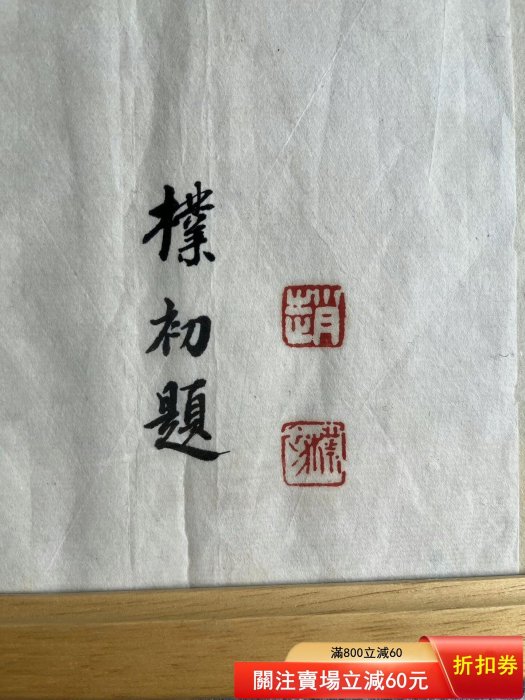 樸初題
趙
樸初
滿800立減60
關注賣場立減60元
折扣券